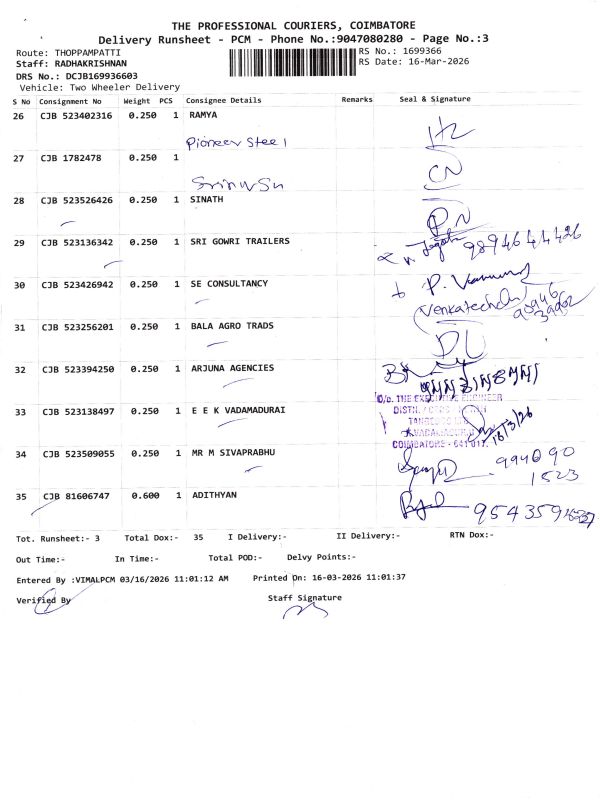 THE PROFESSIONAL COURIERS, COIMBATORE
Delivery Runsheet - PCM - Phone No.:9047080280 - Page No.:3
Route: THOPPAMPATTI
RS No.: 1699366
Staff: RADHAKRISHNAN
RS Date: 16-Mar-2026
DRS No.: DCJB169936603
Vehicle: Two Wheeler Delivery
S No Consignment No Weight PCS Consignee Details Remarks Seal & Signature
26 CJB 523402316 0.250 1 RAMYA
Pioneer Steel
27 CJB 1782478 0.250 1
CN
28 CJB 523526426 0.250 1 SINATH
PN
29 CJB 523136342 0.250 1 SRI GOWRI TRAILERS
9894644426
30 CJB 523426942 0.250 1 SE CONSULTANCY
31 CJB 523256201 0.250 1 BALA AGRO TRADS
32 CJB 523394250 0.250 1 ARJUNA AGENCIES
33 CJB 523138497 0.250 1 E E K VADAMADURAI
O/o. THE EXECUTIVE ENGINEER
16/3/26
COIMBATORE - 641 017.
34 CJB 523509055 0.250 1 MR M SIVAPRABHU
994090
1523
35 CJB 81606747 0.600 1 ADITHYAN
Tot. Runsheet:- 3 Total Dox:- 35 I Delivery:- II Delivery:- RTN Dox:-
Out Time:- In Time:- Total POD:- Delvy Points:-
Entered By :VIMALPCM 03/16/2026 11:01:12 AM Printed On: 16-03-2026 11:01:37
Verified By Staff Signature